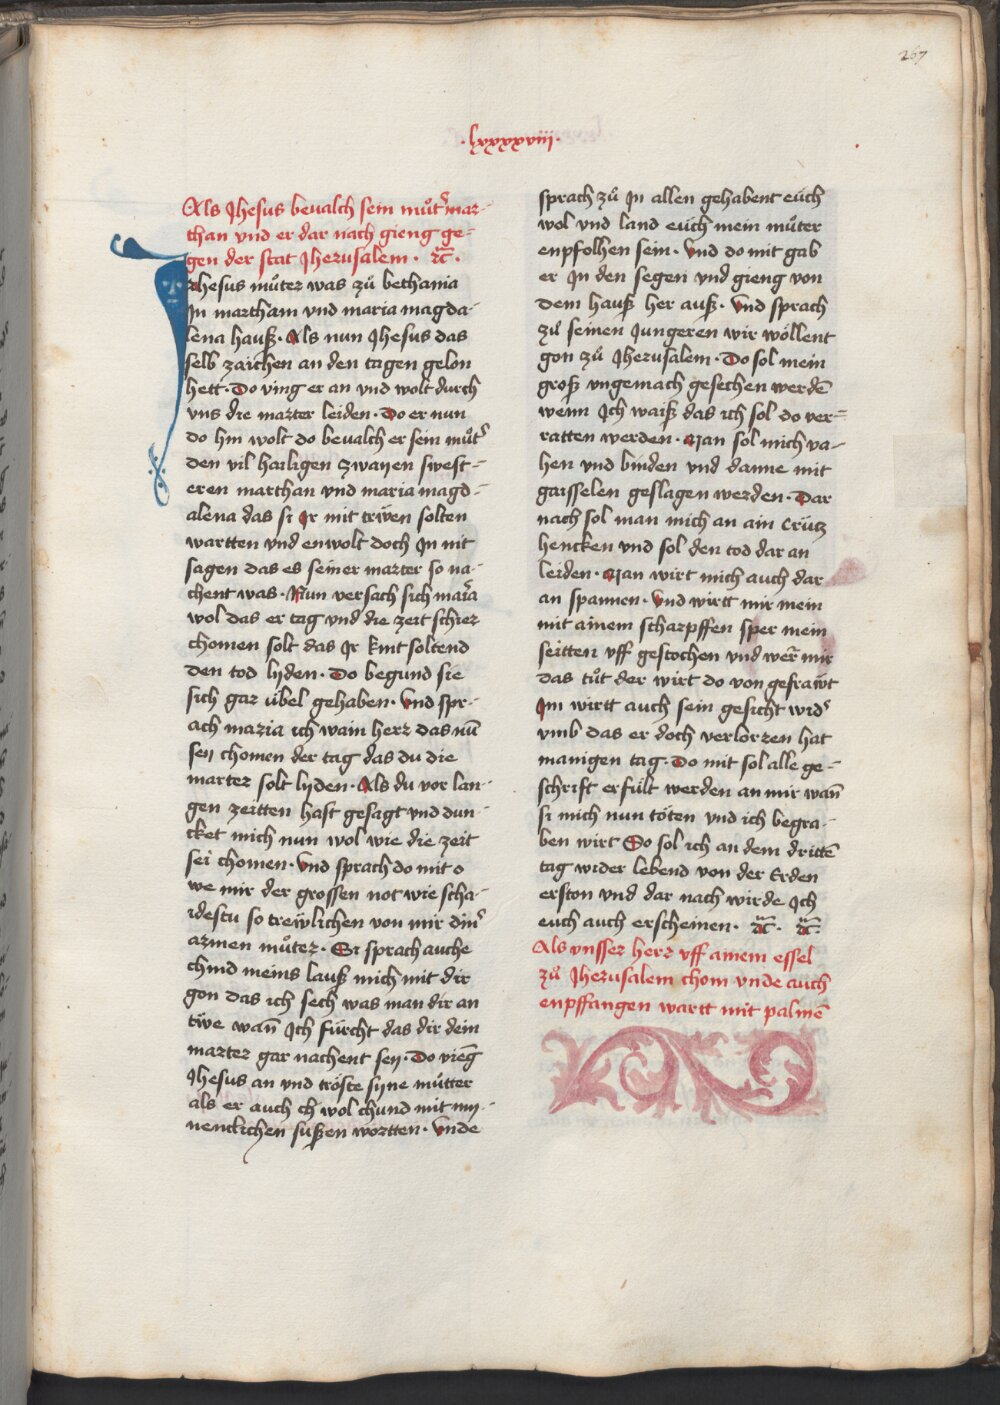 267
·lxxxxviii·
Als Jhesus beualch sein muͦtˀ mar-
than vnd er dar nach gieng ge-
gen der stat Jherusalem · ꝛc̃ ·
Jhesus muͦter was zuͦ bethania
Jn martham vnd maria magda-
lena hauß · Als nun Jhesus das
selb zaichen an den tagen gelon
hett · Do ving er an vnd wolt durch
vns die marter leiden · Do er nun
do hin wolt do beualch er sein muͦtˀ
den vil hailigen zwayen swest-
eren marthan vnd maria magd-
alena das si Jr mit trẅen solten
wartten vnd enwolt doch Jn nit
sagen das es seiner marter so na-
chent was · Nun versach sich mar̃a
wol das er tag vnd die zeit schier
chomen solt das Jr kint soltend
den tod lyden · Do begund sie
sich gar übel gehaben · Vnd spr-
ach maria ich wain herr das nun̄
sey chomen der tag das du die
marter solt lyden · Als du vor lan-
gen zeitten hast gesagt vnd dun-
cket mich nun wol wie die zeit
sei chomen · Vnd sprach do mit o
we mir der grossen not wie scha-
idestu so treẅlichen von mir dinˀ
armen muͦter · Si sprach auche
chind meins lauß mich mit dir
gon das ich sech was man dir an
tẅe wann̄ Jch fürcht das dir dein
marter gar nachent sey · Do vienḡ
Jhesus an vnd tröste syne muͦtter
als er auch ch wol chund mit my-
nencklichen sußen wortten · Vnde
sprach zuͦ Jn allen gehabent eüch
wol vnd land eüch mein muͦter
enpfolhen sein · Vnd do mit gab
er Jn den segen vnd gieng von
dem hauß her auß · Vnd sprach
zuͦ seinen Jungeren wir wöllent
gon zuͦ Jherusalem · Do sol mein
groß vngemach gesechen werdē
wenn Jch waiß das ich sol do ver-
ratten werden · Man sol mich va-
hen vnd binden vnd danne mit
gaisselen geslagen werden · Dar
nach sol man mich an ain Crütz
hencken vnd sol den tod dar an
leiden · Man wirt mich auch dar
an spannen · Vnd wirtt mir mein
mit ainem scharpffen sper mein
seitten vff gestochen vnd wer̃ mir
das tuͦt der wirt do von gefräwt
Jm wirtt auch sein gesicht widˀ
vmb das er doch verlorren hat
manigen tag · Do mit sol alle ge-
schrift erfült werden an mir wan̄
si mich nun töten vnd ich begra-
ben wirt So sol ich an dem drittē
tag wider lebend von der Erden
erston vnd dar nach wirde Jch
euch auch erscheinen · ꝛc̃ · ꝛc̃ ·
Als vnsser herr vff ainem essel
zuͦ Jherusalem chom vnde auch
enpffangen wartt mit palmē